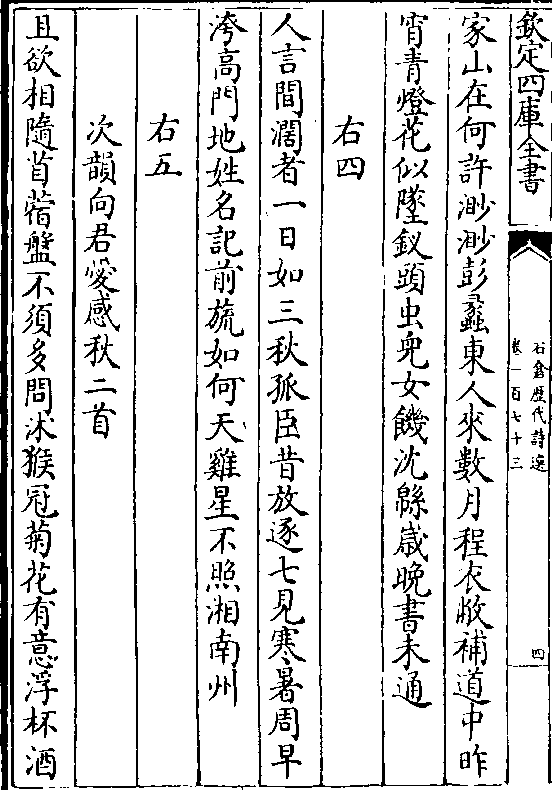 欽定四庫全書
石倉歷代詩選
卷一百七十三
四
家山在何許渺渺彭蠡東人來數月程衣敝補道中昨
宵青燈花似墜釵頭虫兒女饑沈緜嵗晚書未通
右四
人言間濶者一日如三秋孤臣昔放逐七見寒暑周早
洿高門地姓名記前旒如何天雞星不照湘南州
右五
次韻向君愛感秋二首
且欲相隨苜蓿盤不須多問沐猴冠菊花有意浮杯酒